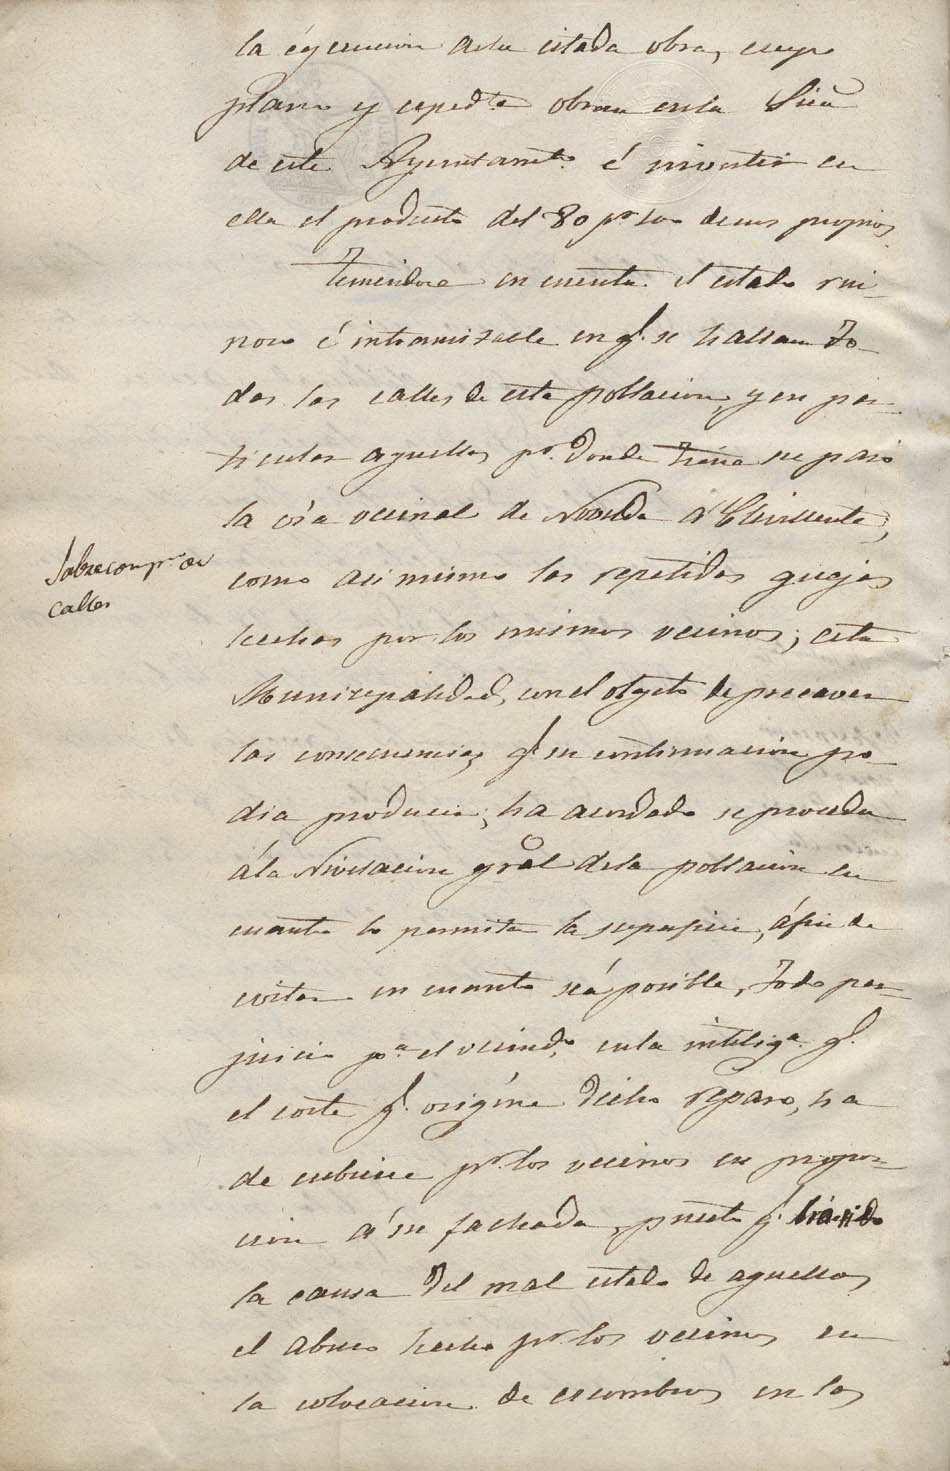 la ejecucion dela citada obra, cuyo
plano y expedte obran enla Sria
de este Ayuntamto é invertir en
ella el producto del 80 pr 100 de sus propios.
Teniendose en cuenta el estado rui-
noso é intransitable en q.e se hallan to-
das las calles de esta poblacion, y en par-
ticular aquellas pr. donde tiene su paso
la via vecinal de Novelda á Crevillente,
como asi mismo las repetidas quejas
hechas por los mismos vecinos; esta
Municipalidad, con el objeto de precaver
las consecuencias q.e su continuacion po-
dia producir, ha acordado se proceda
á la Nivelacion gral dela poblacion en
cuanto lo permita la superficie, áfin de
evitar en cuanto seá posible, todo per-
juicio pa el vecindo, enla inteliga. q.e
el coste q.e origine dicho reparo, ha
de cubrirse pr. los vecinos en propor-
cion á su fachada, puesto q.e há sido
la causa del mal estado de aquellas,
el abuso hecho pr. los vecinos en
la colocacion de escombros en las
Sobre compr. de
calles